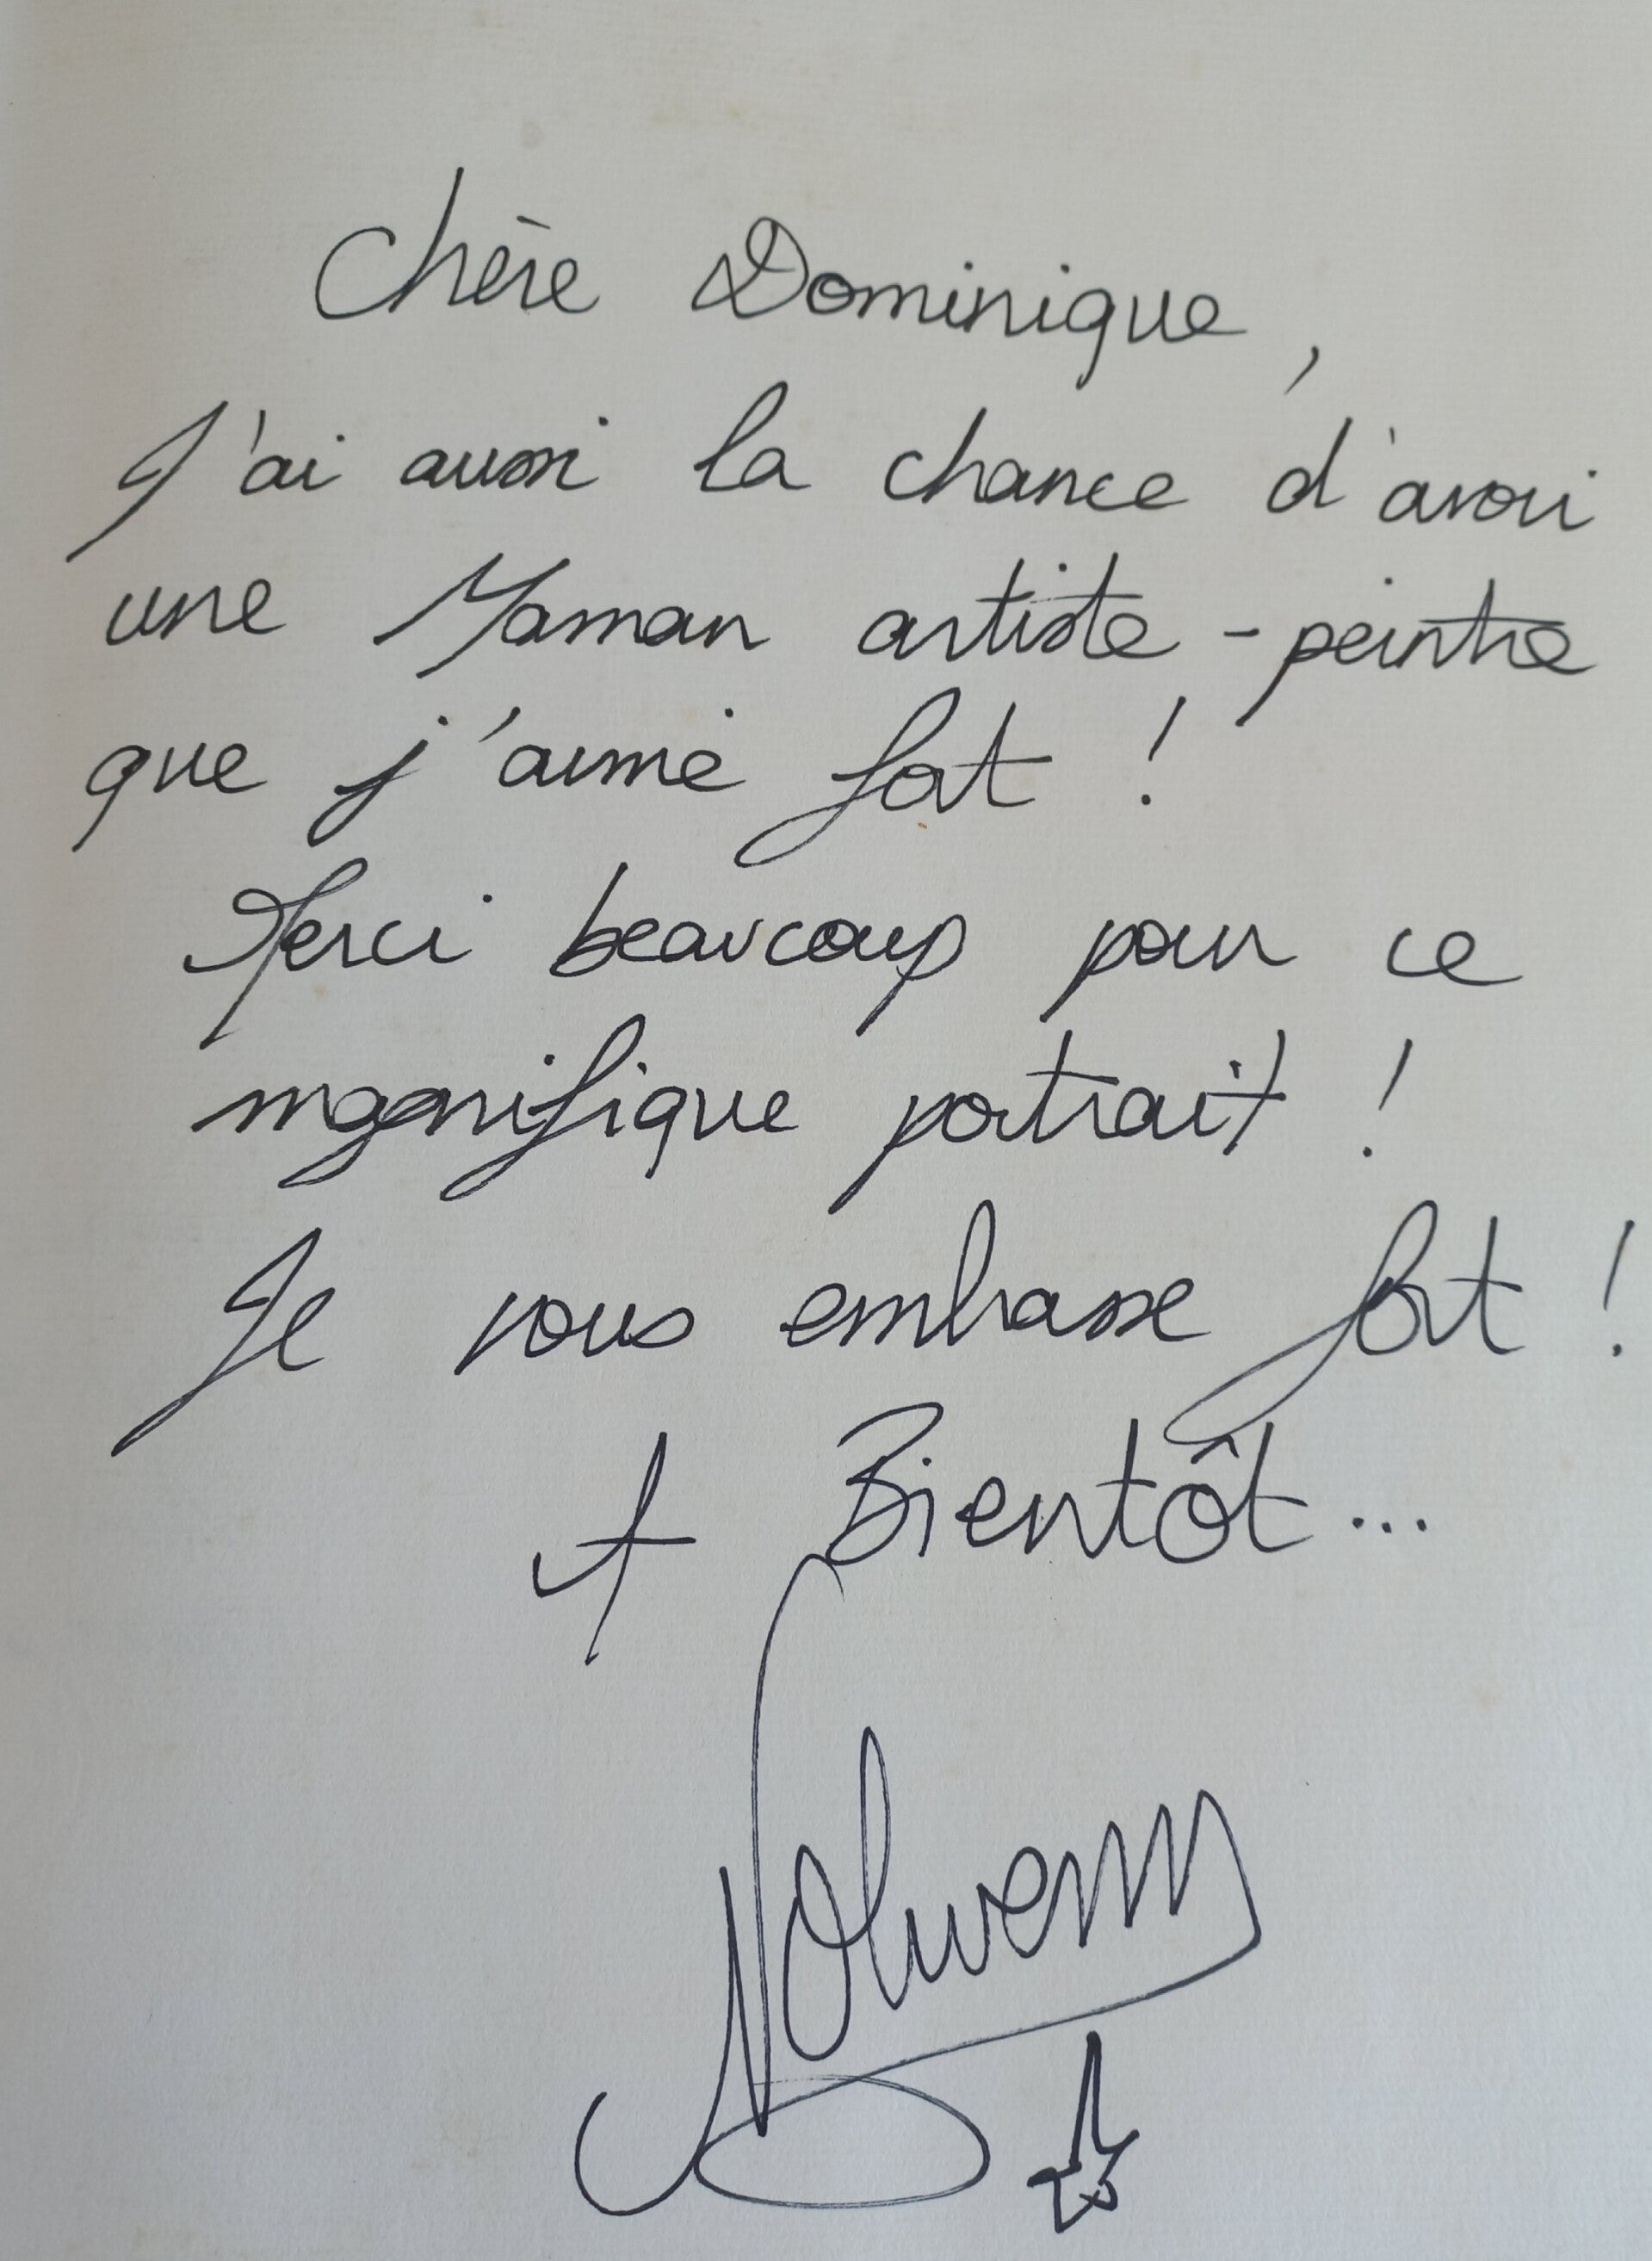 Chère Dominique,
J'ai aussi la chance d'avoir
une Maman artiste-peintre
que j'aime fort !
Merci beaucoup pour ce
magnifique portrait !
Je vous embrasse fort !
A Bientôt...
Nolwenn